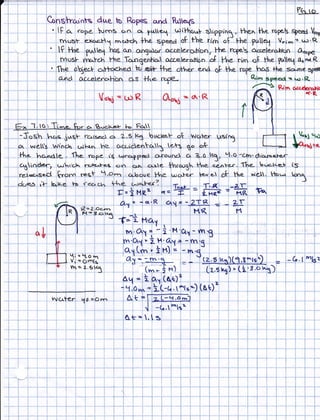 Pg.10
Constraints due to Ropes and Pulleys
• If a rope turns on a pulley without slipping, then the rope's speed Vrope
must exactly match the speed of the rim of the pulley Vrim = ω·R
• If the pulley has an angular acceleration, the rope's acceleration arope
must match the Tangential acceleration of the rim of the pulley at = α·R
• The object attached to the other end of the rope has the same speed
and acceleration as the rope.
Rim speed = ω·R
Rim acceleration
Vobj = ωR aobj = α·R
Ex 7.10: Time for a Bucket to Fall
-Josh has just raised a 2.5 kg bucket of water using
a well's winch when he accidentally lets go of
the handle. The rope is wrapped around a 3.0 kg, 4.0-cm-diameter
cylinder, which rotates on an axle through the center. The bucket is
released from rest 4.0m above the water level of the well. How long
does it take to reach the water?
I = ½MR² α = Tnet/I = T·R/½MR² = 2T/MR
ay = -α·R ay = -2T·R/MR = -2T/M
R = 2.0cm
M = 3.0kg
T = -½May
m·ay = -½·M·ay - m·g
m·ay + ½M·ay = -m·g
ay(m + ½M) = -m·g
ay = -m·g/(m + ½M) = -(2.5kg)(9.8m/s²)/(2.5kg) + (½·3.0kg) = -6.1m/s²
a
yi = 4.0m
Vi = 0m/s
m = 2.5kg
Δy = ½ay(Δt)²
-4.0m = ½(-6.1m/s²)(Δt)²
water yf = 0m
Δt = √2(-4.0m)/-6.1m/s²
Δt = 1.1s